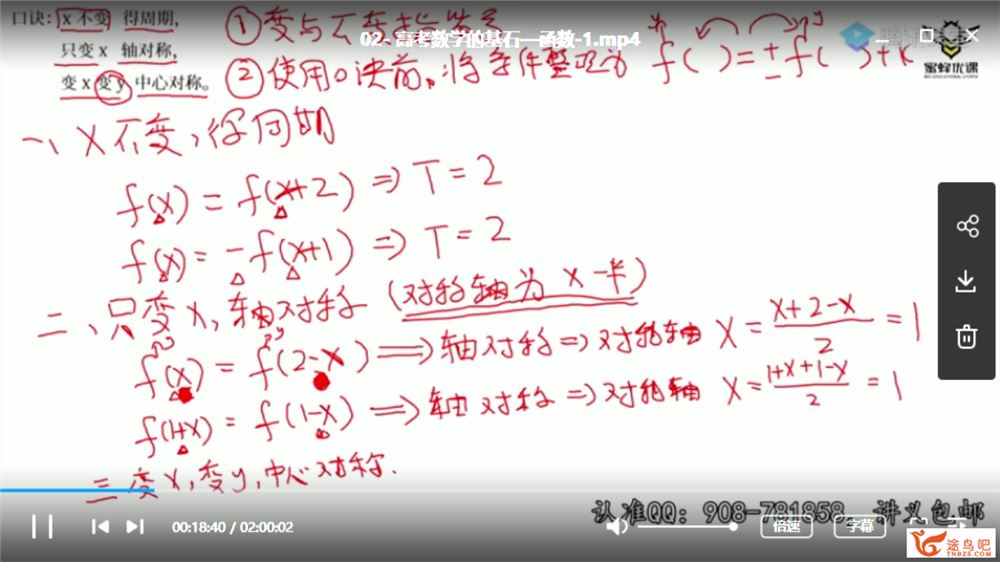 口诀: x不变 得周期,
只变x 轴对称,
变x变y 中心对称。
①变与不变
02-高考数学的基石—函数-1.mp4
②使用口诀前,将条件整理为 f( )=±f( )+k
蜜蜂优课
一、X不变,得周期
f(x)=f(x+2)⇒T=2
f(x)=-f(x+1)⇒T=2
二、只变X,轴对称(对称轴为 X一半)
f(x)=f(2-x)⇒轴对称⇒对称轴 X=\frac{X+2-X}{2}=1
f(1+x)=f(1-x)⇒轴对称⇒对称轴 X=\frac{1+X+1-X}{2}=1
三 变X,变y,中心对称.
认准QQ: 908-781858, 讲义包邮
00:18:40 / 02:00:02
倍速
字幕
途鸟吧
TNBZS.COM